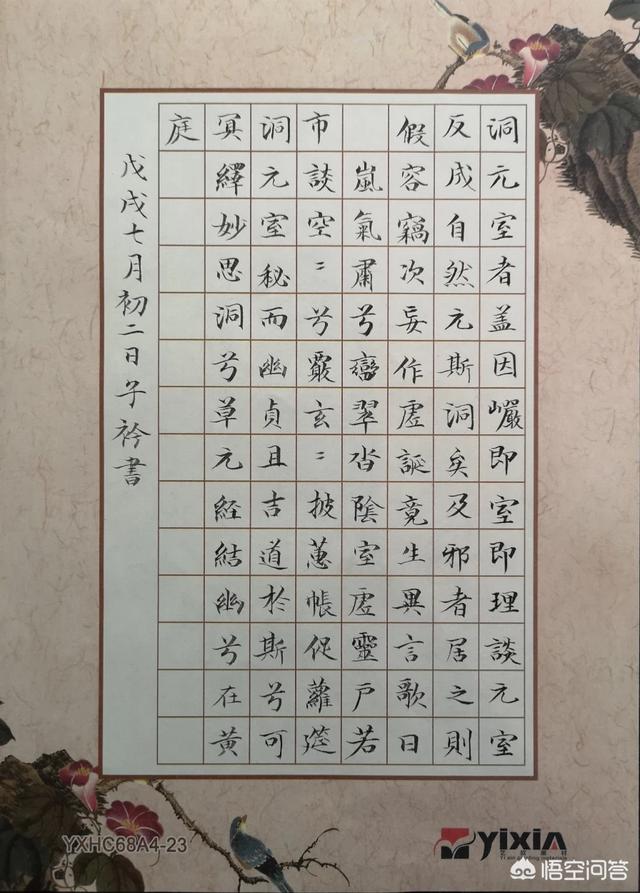 洞元室者盖因巗即室即理談元室
反成自然元斯洞矣及邪者居之則
假容竊次妄作虛誕竟生異言歌曰
嵐氣肅兮巒翠沓陰室虛靈戶若
市談空〻兮覈玄〻披蕙帳促蘿筵
洞元室秘而幽貞且吉道於斯兮可
冥繹妙思洞兮草元経結幽兮在黄
庭
戊戌七月初二日子衿書
YXHC68A4-23
YixiA
悟空问答